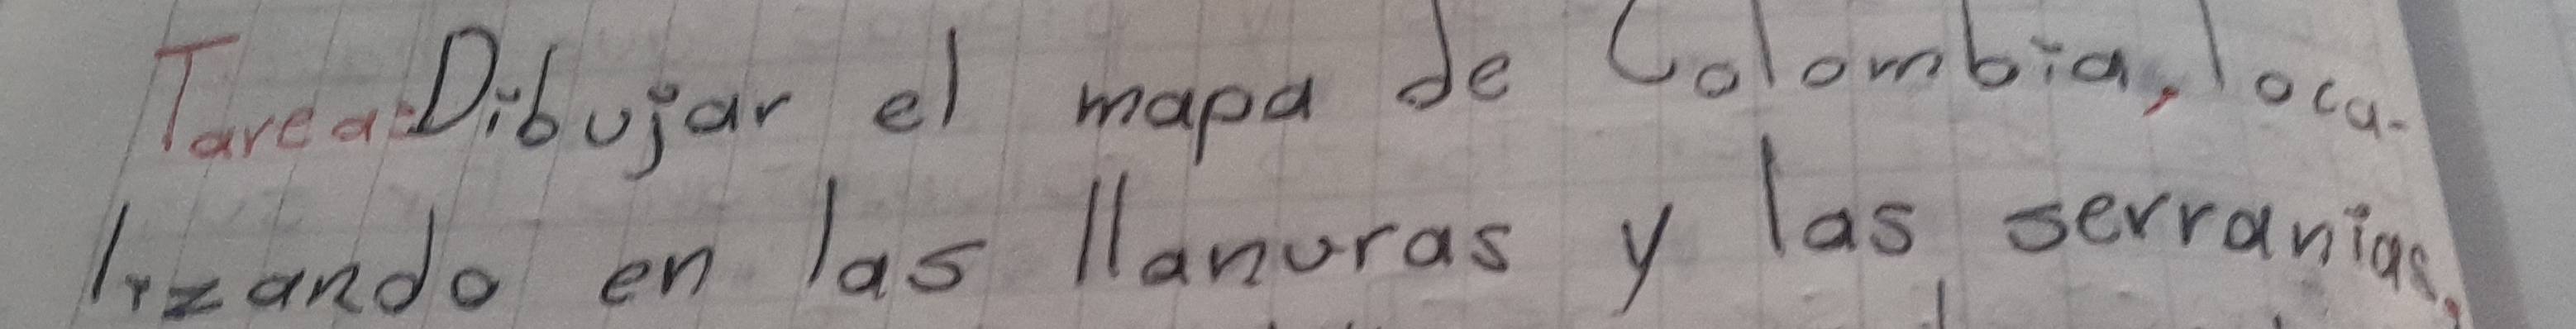 Tarea: Dibujar el mapa de Colombia, loca-
lizando en las llanuras y las serranias.